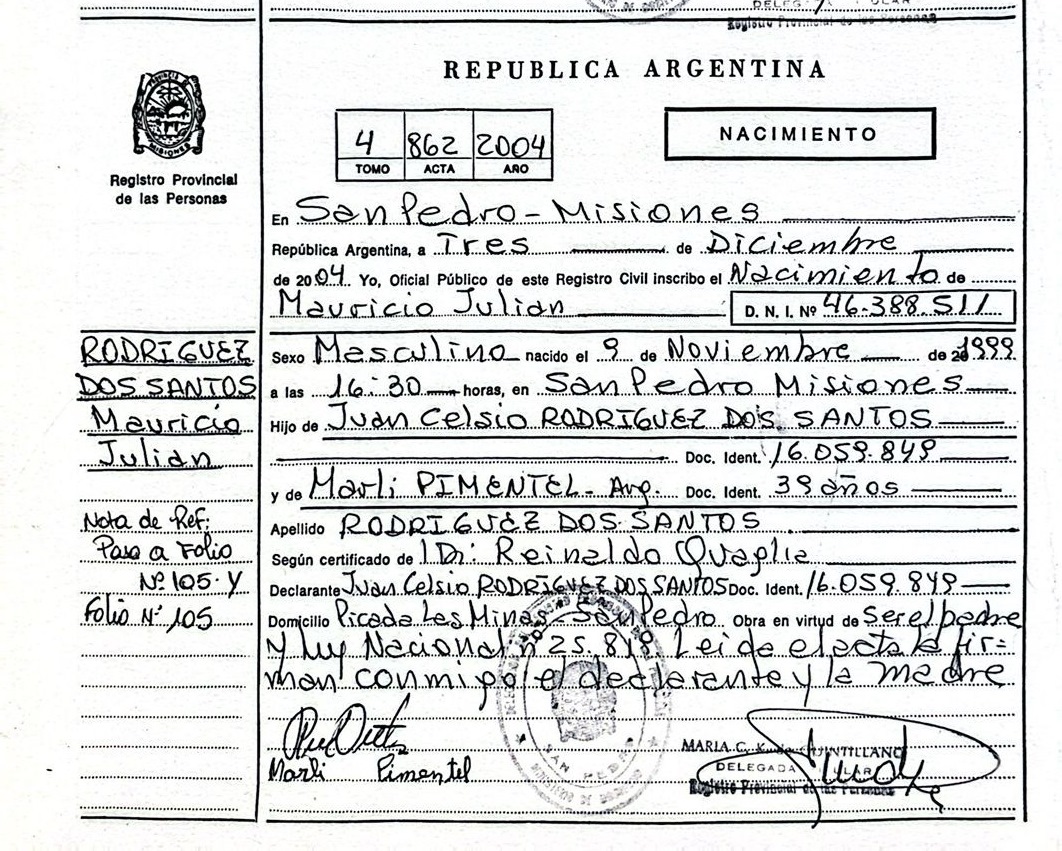 Registro Provincial de las Personas
REPUBLICA ARGENTINA
NACIMIENTO
4 862 2004
TOMO ACTA AÑO
MISIONES
Registro Provincial
de las Personas
En San Pedro - Misiones
República Argentina, a Tres de Diciembre
de 2004. Yo, Oficial Público de este Registro Civil inscribo el Nacimiento de
Mauricio Julian D. N. I. Nº 46.388.511
RODRIGUEZ
DOS SANTOS
Mauricio
Julian
Sexo Masculino nacido el 9 de Noviembre de 1999
a las 16:30 horas, en San Pedro Misiones
Hijo de Juan Celsio RODRIGUEZ DOS SANTOS
Doc. Ident. 16.059.849
y de Marli PIMENTEL - Arg. Doc. Ident. 39 años
Nota de Ref:
Pasa a Folio
Nº 105 y
Folio Nº 105
Apellido RODRIGUEZ DOS SANTOS
Según certificado de Dr: Reinaldo Quaglia
Declarante Juan Celsio RODRIGUEZ DOS SANTOS Doc. Ident. 16.059.849
Domicilio Picada Las Minas - San Pedro Obra en virtud de ser el padre
y ley Nacional nº 25.818 Leida el acta la fir=
man conmigo el declarante y la madre
Marli Pimentel
MARIA C. K. de QUINTILLANO
DELEGADA TITULAR
Registro Provincial de las Personas
SAN PEDRO